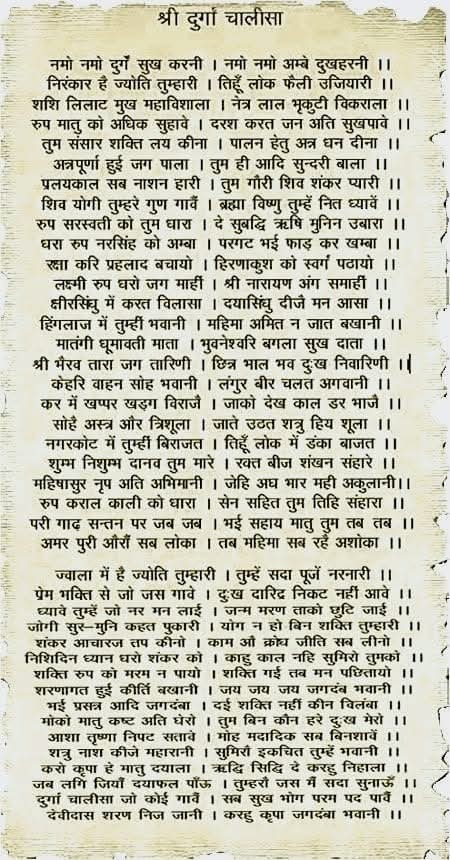 श्री दुर्गा चालीसा
नमो नमो दुर्गे सुख करनी । नमो नमो अम्बे दुखहरनी ।।
निरंकार है ज्योति तुम्हारी । तिहूँ लोक फैली उजियारी ।।
शशि लिलाट मुख महाविशाला । नेत्र लाल भृकुटी विकराला ।।
रुप मातु को अधिक सुहावे । दरश करत जन अति सुखपावे ।।
तुम संसार शक्ति लय कीना । पालन हेतु अन्न धन दीना ।।
अन्नपूर्णा हुई जग पाला । तुम ही आदि सुन्दरी बाला ।।
प्रलयकाल सब नाशन हारी । तुम गौरी शिव शंकर प्यारी ।।
शिव योगी तुम्हरे गुण गावैं । ब्रह्मा विष्णु तुम्हें नित ध्यावें ।।
रुप सरस्वती को तुम धारा । दे सुबद्धि ऋषि मुनिन उबारा ।।
धरा रुप नरसिंह को अम्बा । परगट भई फाड़ कर खम्बा ।।
रक्षा करि प्रहलाद बचायो । हिरणाकुश को स्वर्ग पठायो ।।
लक्ष्मी रुप धरो जग माहीं । श्री नारायण अंग समाहीं ।।
क्षीरसिंधु में करत विलासा । दयासिंधु दीजै मन आसा ।।
हिंगलाज में तुम्हीं भवानी । महिमा अमित न जात बखानी ।।
मातंगी घूमावती माता । भुवनेश्वरि बगला सुख दाता ।।
श्री भैरव तारा जग तारिणी । छिन्न भाल भव दुःख निवारिणी ।।
केहरि वाहन सोह भवानी । लंगुर बीर चलत अगवानी ।।
कर में खप्पर खड्ग विराजै । जाको देख काल डर भाजै ।।
सोहै अस्त्र और त्रिशूला । जाते उठत शत्रु हिय शूला ।।
नगरकोट में तुम्हीं बिराजत । तिहूँ लोक में डंका बाजत ।।
शुम्भ निशुम्भ दानव तुम मारे । रक्त बीज शंखन संहारे ।।
महिषासुर नृप अति अभिमानी । जेहि अघ भार मही अकुलानी।।
रुप कराल काली को धारा । सेन सहित तुम तिहि संहारा ।।
परी गाढ़ सन्तन पर जब जब । भई सहाय मातु तुम तब तब ।।
अमर पुरी औरों सब लोका । तब महिमा सब रहै अशोका ।।
ज्वाला में है ज्योति तुम्हारी । तुम्हें सदा पूजें नरनारी ।।
प्रेम भक्ति से जो जस गावे । दुःख दारिद्र निकट नहीं आवे ।।
ध्यावे तुम्हें जो नर मन लाई । जन्म मरण ताको छुटि जाई ।।
जोगी सुर-मुनि कहत पुकारी । योग न हो बिन शक्ति तुम्हारी ।।
शंकर आचारज तप कीनो । काम औ क्रोध जीति सब लीनो ।।
निशिदिन ध्यान धरो शंकर को । काहु काल नहि सुमिरो तुमको ।।
शक्ति रुप को मरम न पायो । शक्ति गई तब मन पछितायो ।।
शरणागत हुई कीर्ति बखानी । जय जय जय जगदंब भवानी ।।
भई प्रसन्न आदि जगदंबा । दई शक्ति नहीं कीन विलंबा ।।
मोको मातु कष्ट अति घेरो । तुम बिन कौन हरे दुःख मेरो ।।
आशा तृष्णा निपट सतावे । मोह मदादिक सब बिनशावें ।।
शत्रु नाश कीजे महारानी । सुमिरौं इकचित तुम्हें भवानी ।।
करो कृपा हे मातु दयाला । ऋद्धि सिद्धि दे करहु निहाला ।।
जब लगि जियाँ दयाफल पाँऊ । तुम्हरौ जस मैं सदा सुनाऊँ ।।
दुर्गा चालीसा जो कोई गावैं । सब सुख भोग परम पद पावैं ।।
देवीदास शरण निज जानी । करहु कृपा जगदंबा भवानी ।।